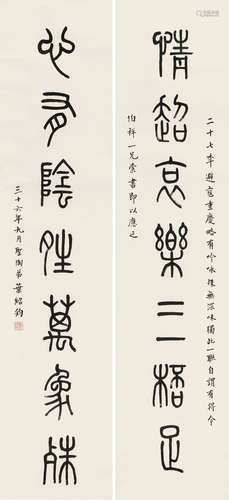 情超哀樂三桮足
二十七年避寇重慶略有吟詠殊無深味獨此一聯自謂有得今
伯祥一兄索書即以應之
心有陰夝萬象殊
三十六年九月聖陶弟葉紹鈞